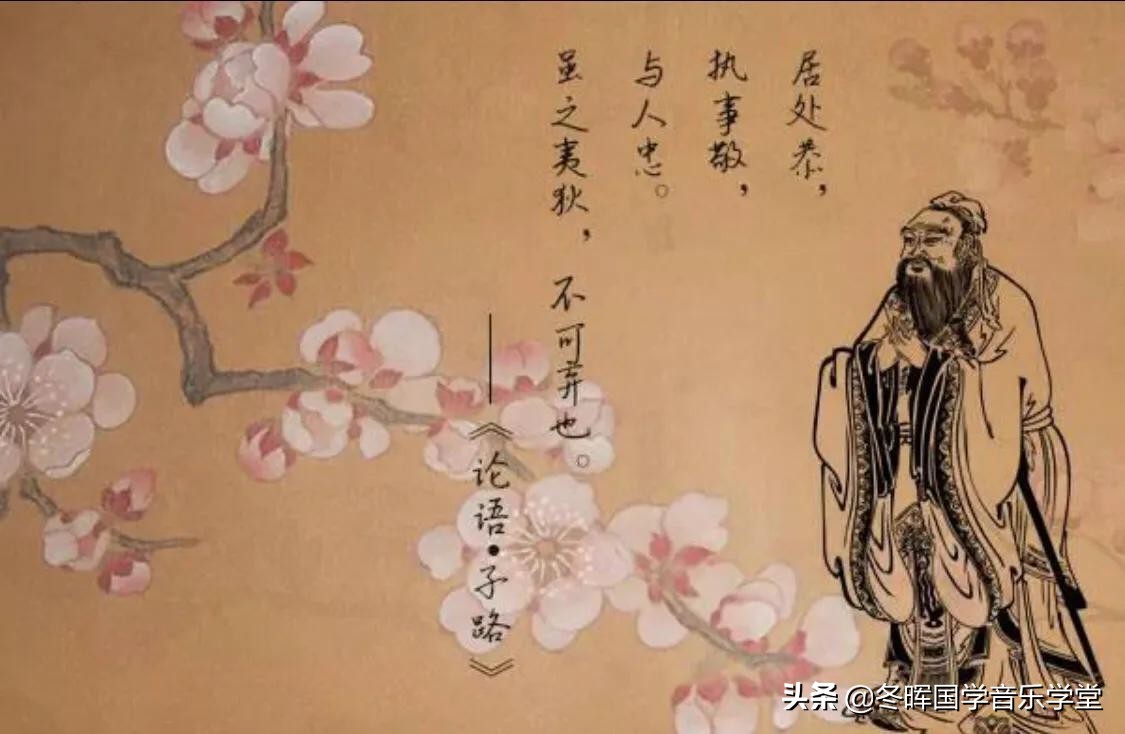 居处恭，
执事敬，
与人忠。
虽之夷狄，不可弃也。
——《论语·子路》
头条 @冬晖国学音乐学堂